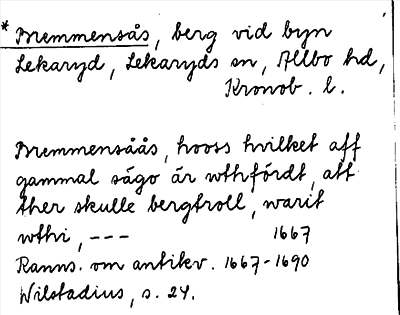 * Bremmensås, berg vid byn
Lekaryd, Lekaryds sn, Allbo hd,
Kronob. l.
Bremmensåås, hooss hvilket aff
gammal sägo är wthfördt, att
ther skulle bergtroll, warit
wthi, --- 1667
Ranns. om antikv. 1667-1690
Wilstadius, s. 24.